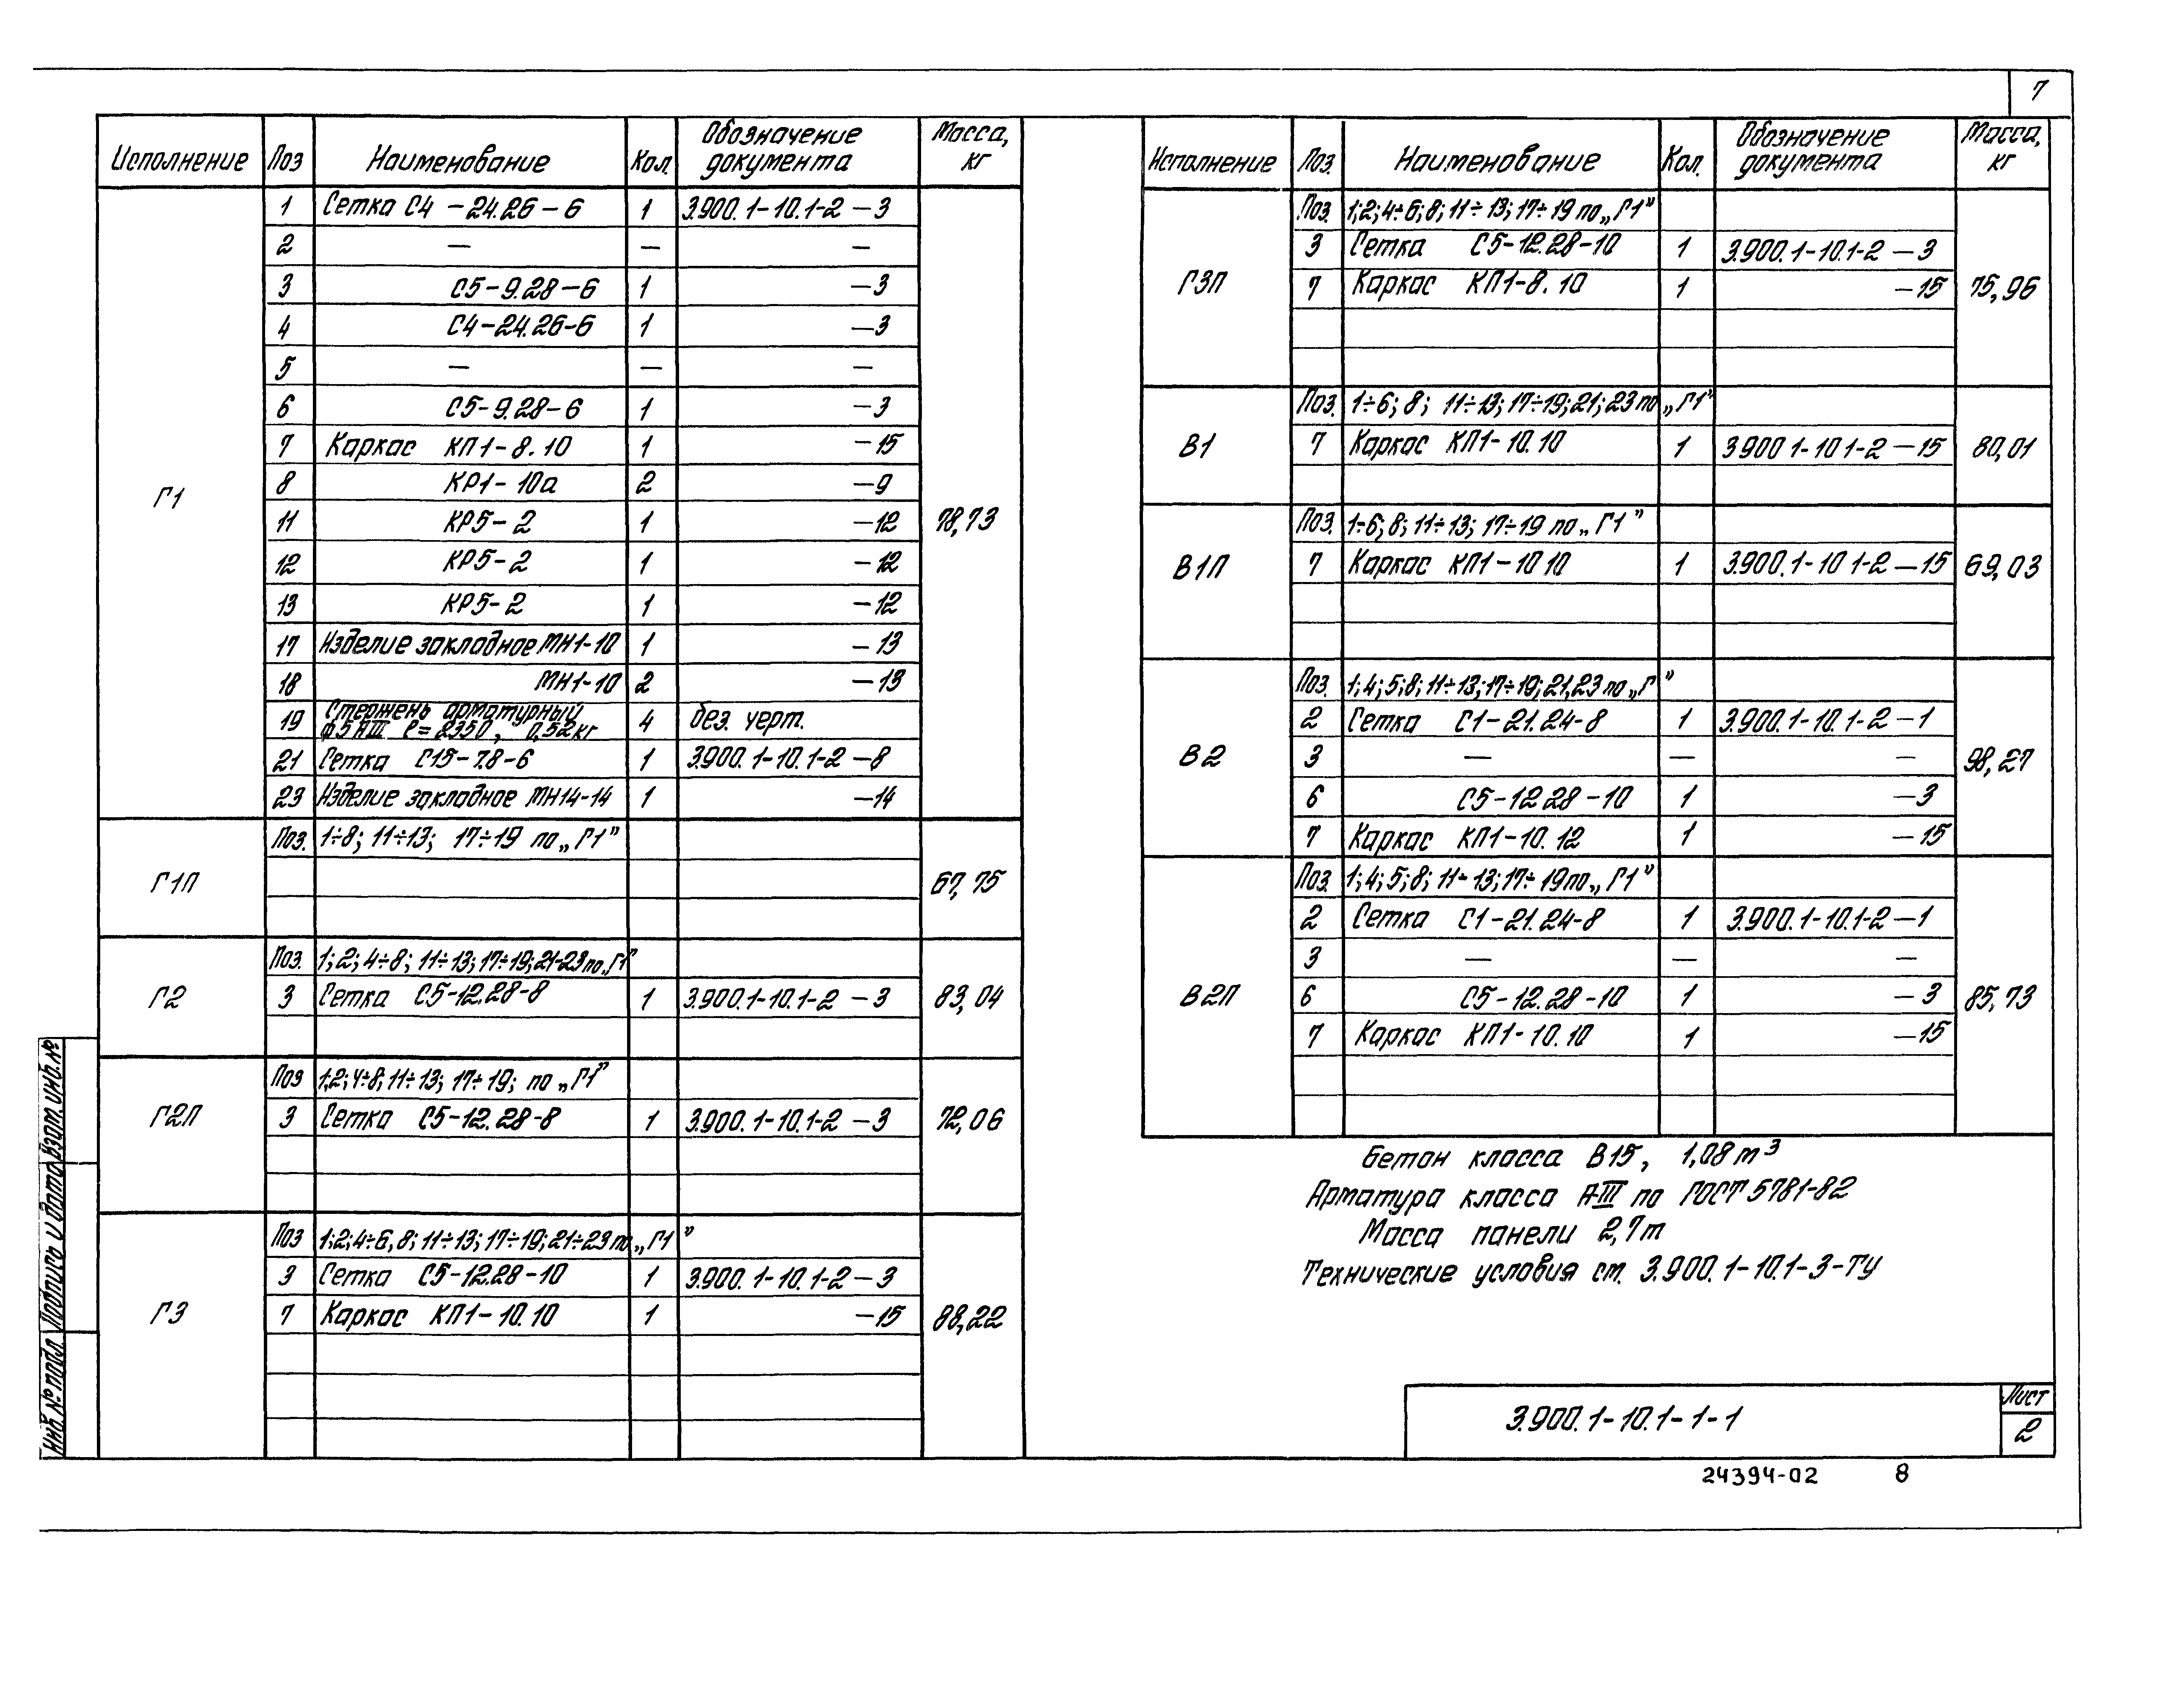 7
Исполнение Поз Наименование Кол. Обозначение документа Масса, кг
Г1 78,73
1 Сетка С4-24.26-6 1 3.900.1-10.1-2-3
2 — — —
3 С5-9.28-6 1 -3
4 С4-24.26-6 1 -3
5 — — —
6 С5-9.28-6 1 -3
7 Каркас КП1-8.10 1 -15
8 КР1-10а 2 -9
11 КР5-2 1 -12
12 КР5-2 1 -12
13 КР5-2 1 -12
17 Изделие закладное МН1-10 1 -13
18 МН1-10 2 -13
19 Стержень арматурный 4 без черт.
ф5АIII ℓ=2350, 0,52кг
21 Сетка С15-7.8-6 1 3.900.1-10.1-2-8
23 Изделие закладное МН14-14 1 -14
Поз. 1÷8; 11÷13; 17÷19 по „Г1”
Г1П 67,75
Поз. 1; 2; 4÷8; 11÷13; 17÷19; 21÷23 по „Г1”
Г2 3 Сетка С5-12.28-8 1 3.900.1-10.1-2-3 83,04
Поз 1,2; 4÷8; 11÷13; 17÷19; по „Г1”
Г2П 3 Сетка С5-12.28-8 1 3.900.1-10.1-2-3 72,06
Поз 1;2;4÷6,8; 11÷13; 17÷19; 21÷23 по „Г1”
3 Сетка С5-12.28-10 1 3.900.1-10.1-2-3
Г3 7 Каркас КП1-10.10 1 -15 88,22
Исполнение Поз. Наименование Кол. Обозначение документа Масса, кг
Поз. 1;2;4÷6;8; 11÷13; 17÷19 по „Г1”
3 Сетка С5-12.28-10 1 3.900.1-10.1-2-3
Г3П 7 Каркас КП1-8.10 1 -15 75,96
Поз. 1÷6; 8; 11÷13; 17÷19; 21; 23 по „Г1”
В1 7 Каркас КП1-10.10 1 3.900 1-10 1-2-15 80,01
Поз. 1÷6; 8; 11÷13; 17÷19 по „Г1”
В1П 7 Каркас КП1-10 10 1 3.900.1-10 1-2-15 69,03
Поз. 1; 4; 5; 8; 11÷13; 17÷19; 21,23 по „Г ”
2 Сетка С1-21.24-8 1 3.900.1-10.1-2-1
В2 3 — — — 98,27
6 С5-12 28-10 1 -3
7 Каркас КП1-10.12 1 -15
Поз. 1; 4; 5; 8; 11÷13; 17÷19 по „Г1”
2 Сетка С1-21.24-8 1 3.900.1-10.1-2-1
3 — — —
В2П 6 С5-12.28-10 1 -3 85,73
7 Каркас КП1-10.10 1 -15
Бетон класса В15, 1,08 м³
Арматура класса А-III по ГОСТ 5781-82
Масса панели 2,7т
Технические условия ст. 3.900.1-10.1-3-ТУ
3.900.1-10.1-1-1
Лист
2
24394-02 8
Инв. № подл. Подпись и дата Взам. инв. №